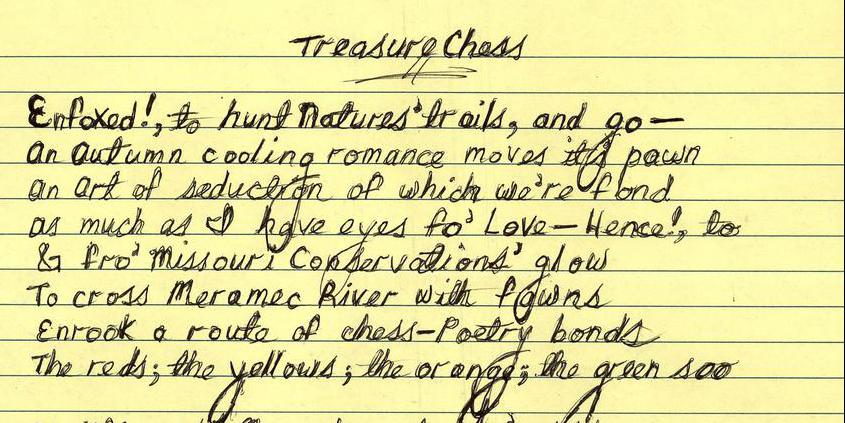 Treasure Chess
Enfoxed!, to hunt Natures' trails, and go—
an autumn cooling romance moves it's pawn
an art of seduction of which we're fond
as much as I have eyes fo' Love—Hence!, to
& fro' Missouri Conservations' glow
To cross Meramec River with fawns
Enrook a route of chess-Poetry bonds
The reds; the yellows; the orange; the green soo